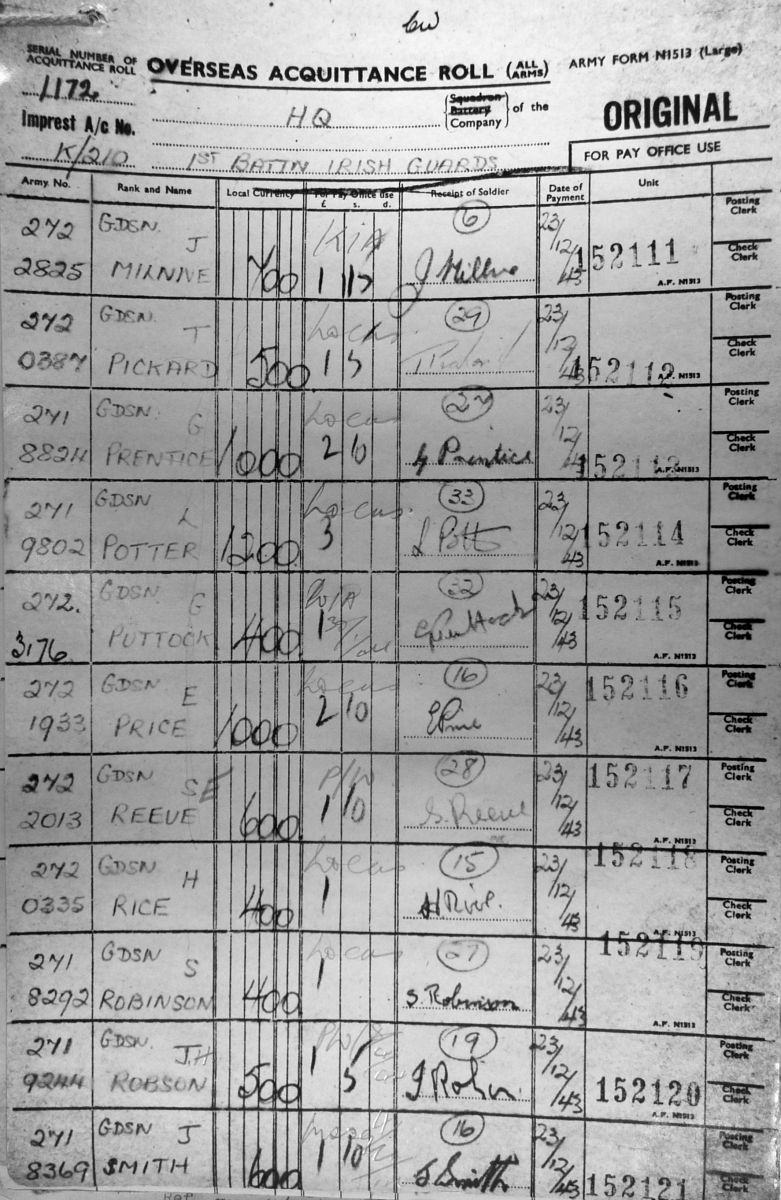 SERIAL NUMBER OF
ACQUITTANCE ROLL
OVERSEAS ACQUITTANCE ROLL (ALL ARMS)
ARMY FORM N1513 (Large)
1172
HQ
Squadron
Battery
Company
of the
ORIGINAL
Imprest A/c No.
K/210
1ST BATTN IRISH GUARDS
FOR PAY OFFICE USE
Army No. Rank and Name Local Currency For Pay Office use £ s. d. Receipt of Soldier Date of Payment Unit Posting Clerk
272 GDSN. J KIA 6 23/
2825 MILNNE 700 1 15 12/43 152111 Check Clerk
A.F. N1513
272 GDSN. T Locas. 29 23/ Posting Clerk
0387 PICKARD 500 1 5 12/43 152112 Check Clerk
A.F. N1513
271 GDSN G Locas 27 23/ Posting Clerk
8824 PRENTICE 1000 2 10 G Prentice 12/43 152113 Check Clerk
A.F. N1513
271 GDSN L Locas. 33 23/ Posting Clerk
9802 POTTER 1200 3 L Potter 12/43 152114 Check Clerk
A.F. N1513
272. GDSN G 32 23/ 152115 Posting Clerk
3176 PUTTOCK 400 1 12/43 Check Clerk
A.F. N1513
272 GDSN E Locas 16 23/ 152116 Posting Clerk
1933 PRICE 1000 2 10 E Price 12/43 Check Clerk
A.F. N1513
272 GDSN SE P/W 28 23/ 152117 Posting Clerk
2013 REEVE 600 1 10 S. Reeve 12/43 Check Clerk
A.F. N1513
272 GDSN H Locas 15 23/ 152118 Posting Clerk
0335 RICE 400 1 H Rice. 12/43 Check Clerk
A.F. N1513
271 GDSN S Locas 27 23/ 152119 Posting Clerk
8292 ROBINSON 400 1 S. Robinson 12/43 Check Clerk
A.F. N1513
271 GDSN. J.H P/W 19 23/ Posting Clerk
9244 ROBSON 500 1 5 J Robson 12/43 152120 Check Clerk
A.F. N1513
271 GDSN J 16 23/ Posting Clerk
8369 SMITH 600 1 10 J Smith 12/43 152121 Check Clerk